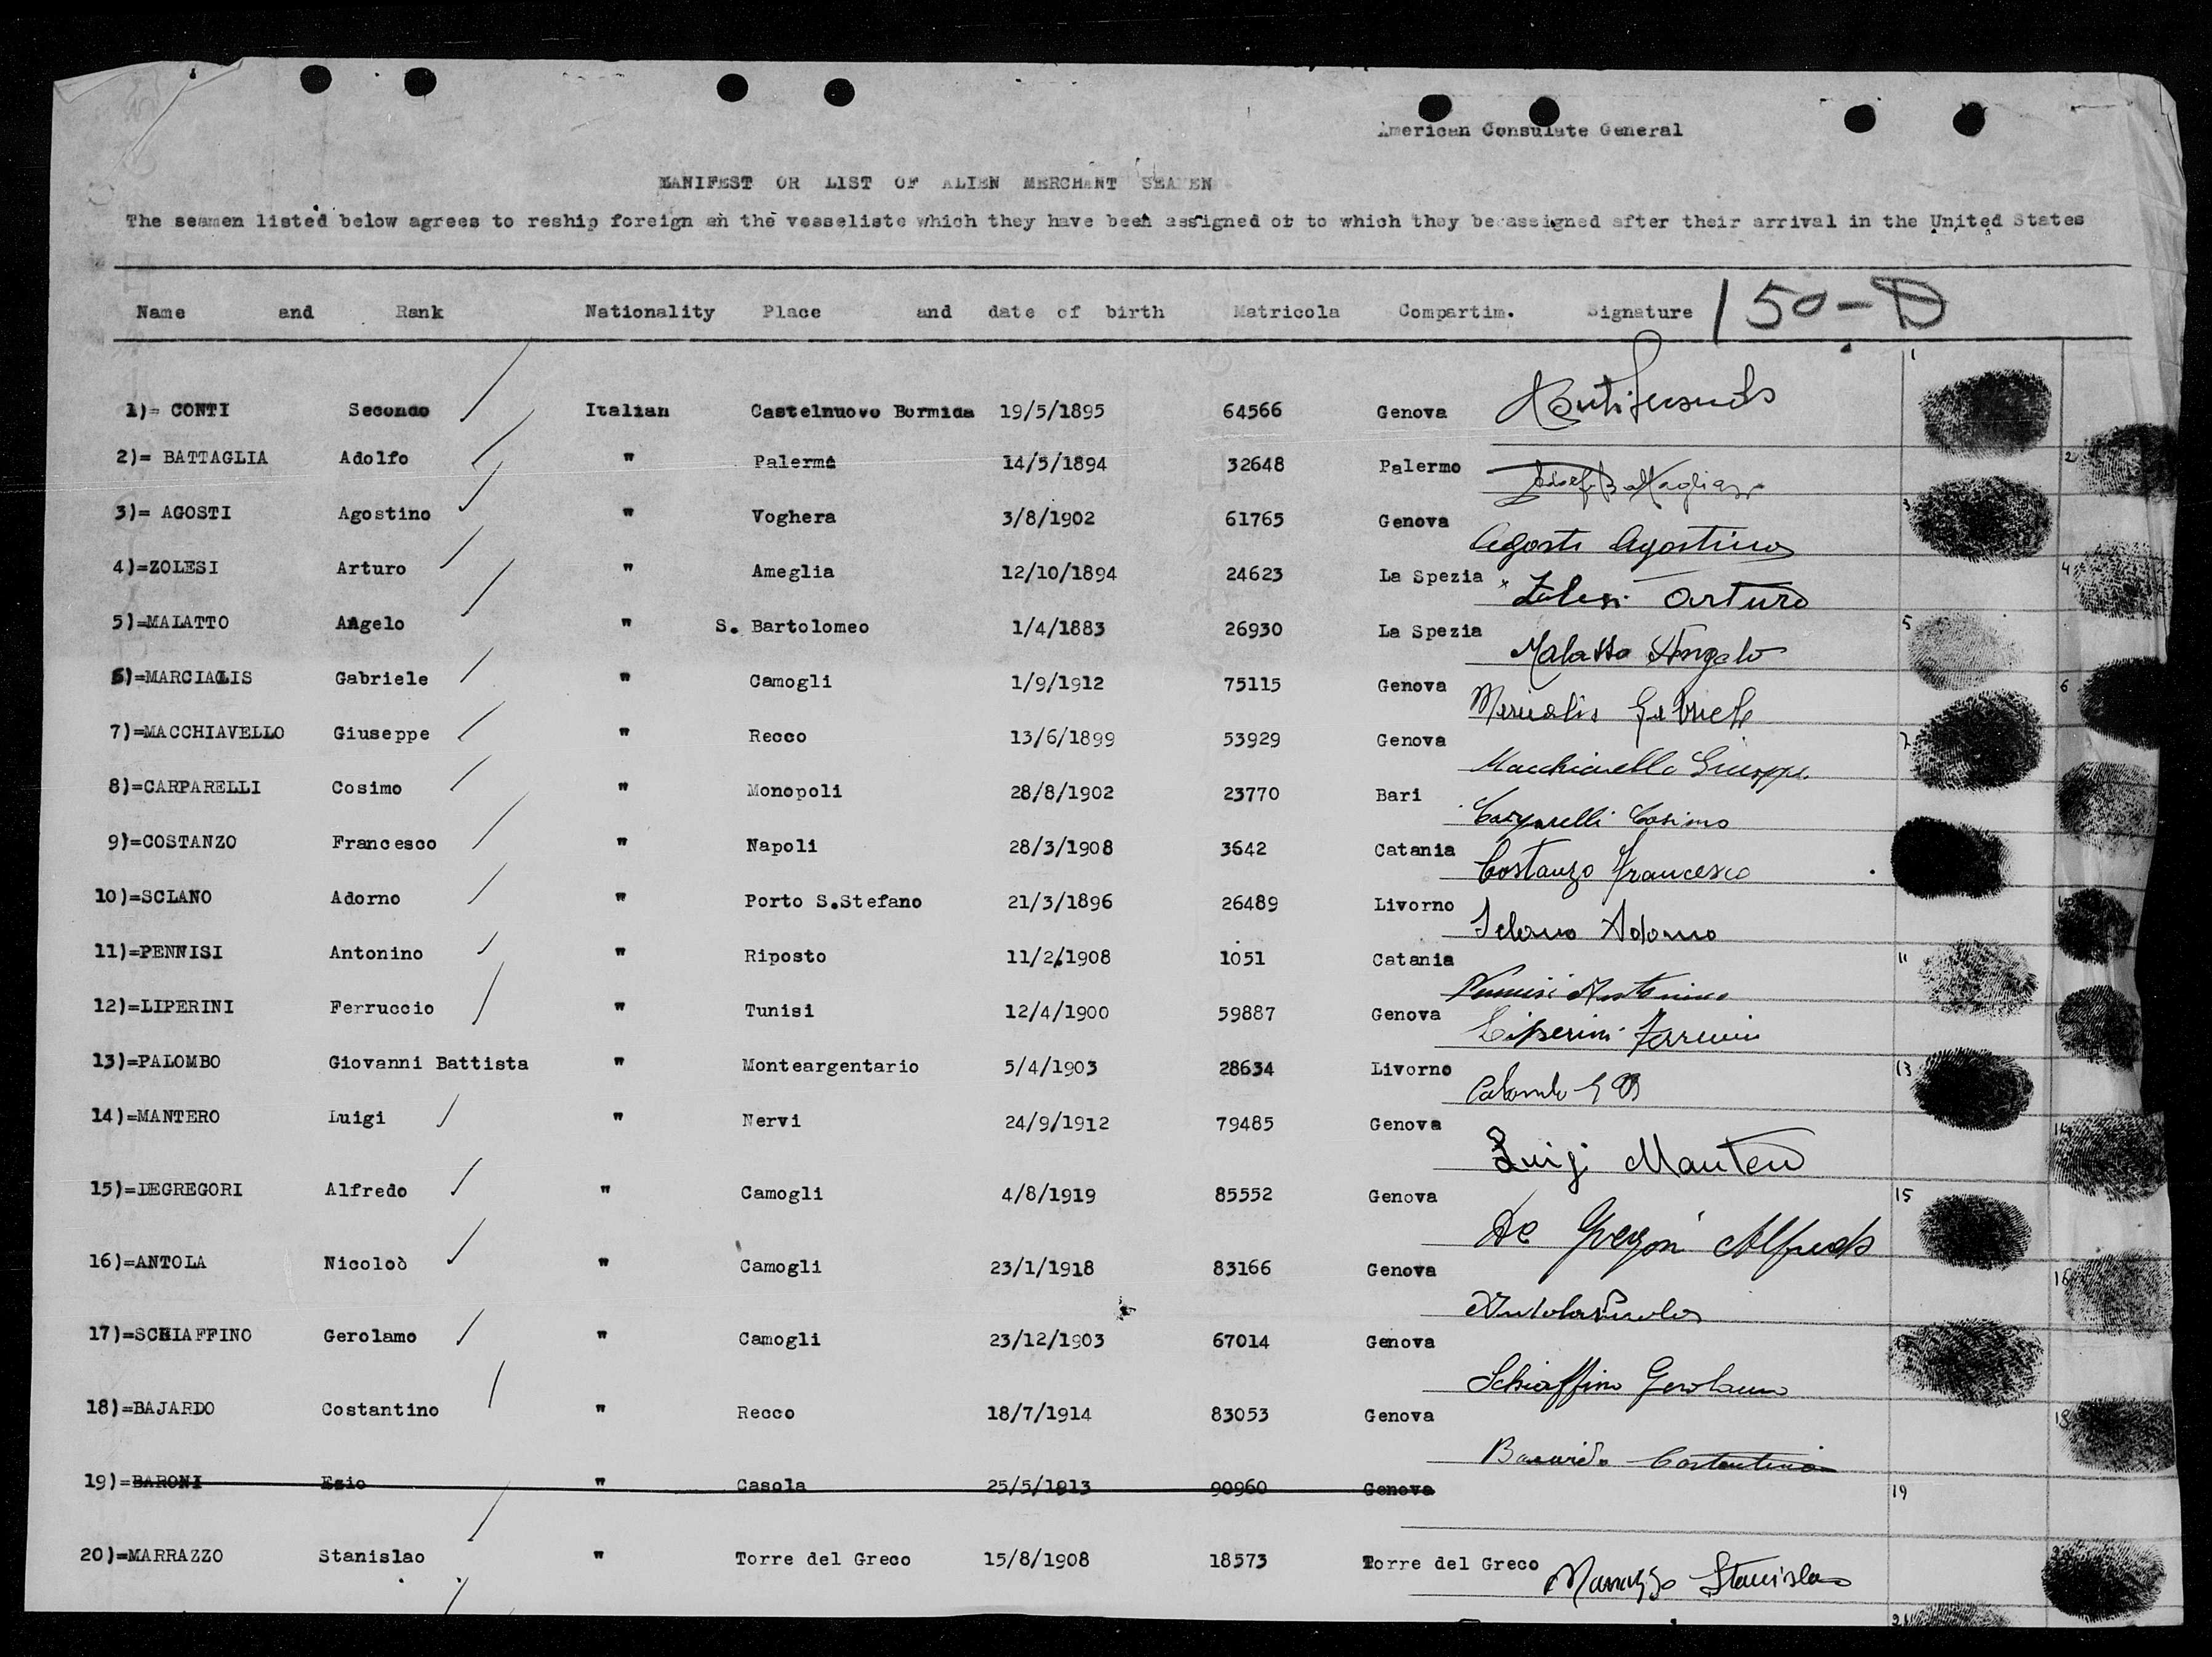 American Consulate General
MANIFEST OR LIST OF ALIEN MERCHANT SEAMEN
The seamen listed below agrees to reship foreign on the vesseliste which they have been assigned or to which they be assigned after their arrival in the United States
Name and Rank Nationality Place and date of birth Matricola Compartim. Signature 150-D
1)= CONTI Secondo Italian Castelnuovo Bormida 19/5/1895 64566 Genova 1
2)= BATTAGLIA Adolfo " Palermo 14/5/1894 32648 Palermo Battaglia 2
3)= AGOSTI Agostino " Voghera 3/8/1902 61765 Genova Agosti Agostino 3
4)=ZOLESI Arturo " Ameglia 12/10/1894 24623 La Spezia x Zolesi Arturo 4
5)=MALATTO Angelo " S. Bartolomeo 1/4/1883 26930 La Spezia Malatto Angelo 5
6)=MARCIALIS Gabriele " Camogli 1/9/1912 75115 Genova Marcialis Gabriele 6
7)=MACCHIAVELLO Giuseppe " Recco 13/6/1899 53929 Genova Macchiavello Giuseppe 7
8)=CARPARELLI Cosimo " Monopoli 28/8/1902 23770 Bari Carparelli Cosimo
9)=COSTANZO Francesco " Napoli 28/3/1908 3642 Catania Costanzo Francesco
10)=SCLANO Adorno " Porto S.Stefano 21/3/1896 26489 Livorno Sclano Adorno 10
11)=PENNISI Antonino " Riposto 11/2/1908 1051 Catania Pennisi Antonino 11
12)=LIPERINI Ferruccio " Tunisi 12/4/1900 59887 Genova Liperini Ferruccio
13)=PALOMBO Giovanni Battista " Monteargentario 5/4/1903 28634 Livorno Palombo G B 13
14)=MANTERO Luigi " Nervi 24/9/1912 79485 Genova Luigi Mantero 14
15)=DEGREGORI Alfredo " Camogli 4/8/1919 85552 Genova De Gregori Alfredo 15
16)=ANTOLA Nicoloò " Camogli 23/1/1918 83166 Genova Antola Nicolo 16
17)=SCHIAFFINO Gerolamo " Camogli 23/12/1903 67014 Genova Schiaffino Gerolamo
18)=BAJARDO Costantino " Recco 18/7/1914 83053 Genova Costantino 18
19)=BARONI Ezio " Casola 25/5/1913 90960 Genova 19
20)=MARRAZZO Stanislao " Torre del Greco 15/8/1908 18573 Torre del Greco Marrazzo Stanislao 20
21